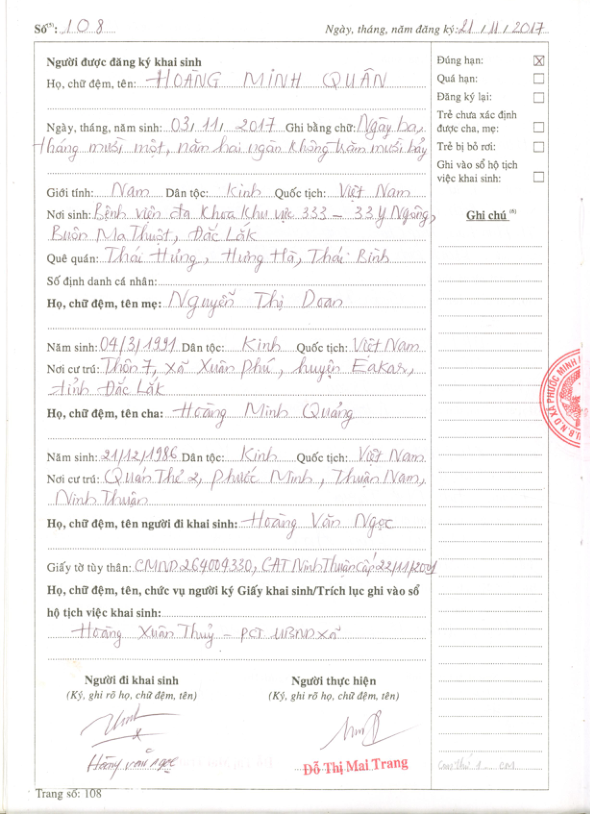 Số⁽⁵⁾: 108
Ngày, tháng, năm đăng ký: 21/11/2017
Người được đăng ký khai sinh
Họ, chữ đệm, tên: HOÀNG MINH QUÂN
Ngày, tháng, năm sinh: 03/11/2017 Ghi bằng chữ: Ngày ba,
tháng mười một, năm hai ngàn không trăm mười bảy
Giới tính: Nam Dân tộc: Kinh Quốc tịch: Việt Nam
Nơi sinh: Bệnh viện đa khoa khu vực 333 – 33 Y Ngông,
Buôn Ma Thuột, Đắc Lắk
Quê quán: Thái Hưng, Hưng Hà, Thái Bình
Số định danh cá nhân:
Họ, chữ đệm, tên mẹ: Nguyễn Thị Doan
Năm sinh: 04/3/1991 Dân tộc: Kinh Quốc tịch: Việt Nam
Nơi cư trú: Thôn 7, xã Xuân Phú, huyện Eakar,
tỉnh Đắc Lắk
Họ, chữ đệm, tên cha: Hoàng Minh Quảng
Năm sinh: 21/12/1986 Dân tộc: Kinh Quốc tịch: Việt Nam
Nơi cư trú: Quán Thẻ 2, Phước Minh, Thuận Nam,
Ninh Thuận
Họ, chữ đệm, tên người đi khai sinh: Hoàng Văn Ngọc
Giấy tờ tùy thân: CMND 264009330, CAT Ninh Thuận cấp 22/11/2001
Họ, chữ đệm, tên, chức vụ người ký Giấy khai sinh/Trích lục ghi vào sổ
hộ tịch việc khai sinh:
Hoàng Xuân Thuỷ – PCT UBND xã
Người đi khai sinh
(Ký, ghi rõ họ, chữ đệm, tên)
Hoàng Văn Ngọc
Người thực hiện
(Ký, ghi rõ họ, chữ đệm, tên)
Đỗ Thị Mai Trang
Đúng hạn: ☒
Quá hạn: ☐
Đăng ký lại: ☐
Trẻ chưa xác định
được cha, mẹ: ☐
Trẻ bị bỏ rơi: ☐
Ghi vào sổ hộ tịch
việc khai sinh: ☐
Ghi chú ⁽⁶⁾
U.B.N.D XÃ PHƯỚC MINH
con thứ 1 con
Trang số: 108